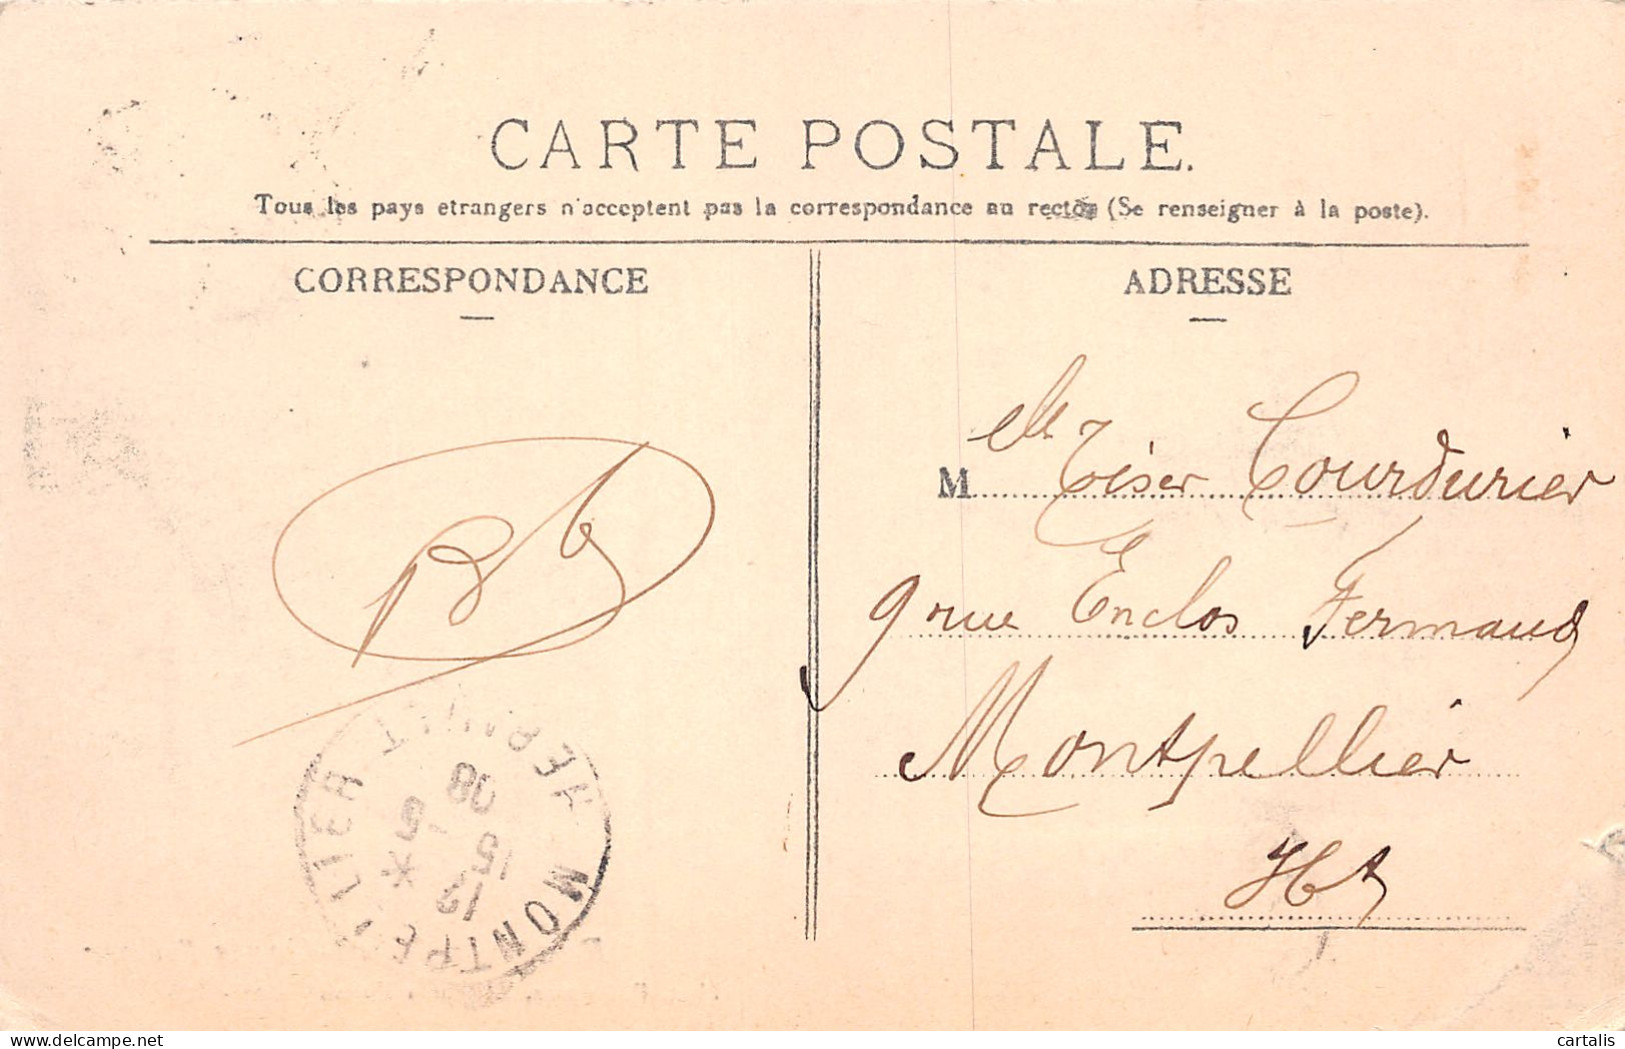 CARTE POSTALE.
Tous les pays etrangers n'acceptent pas la correspondance au recto (Se renseigner à la poste).
CORRESPONDANCE
ADRESSE
Melle Courdurier
9 rue Enclos Fermaud
Montpellier
Hlt
MONTPELLIER HERAULT
5 * 
15
12
08
delcampe.net
cartalis